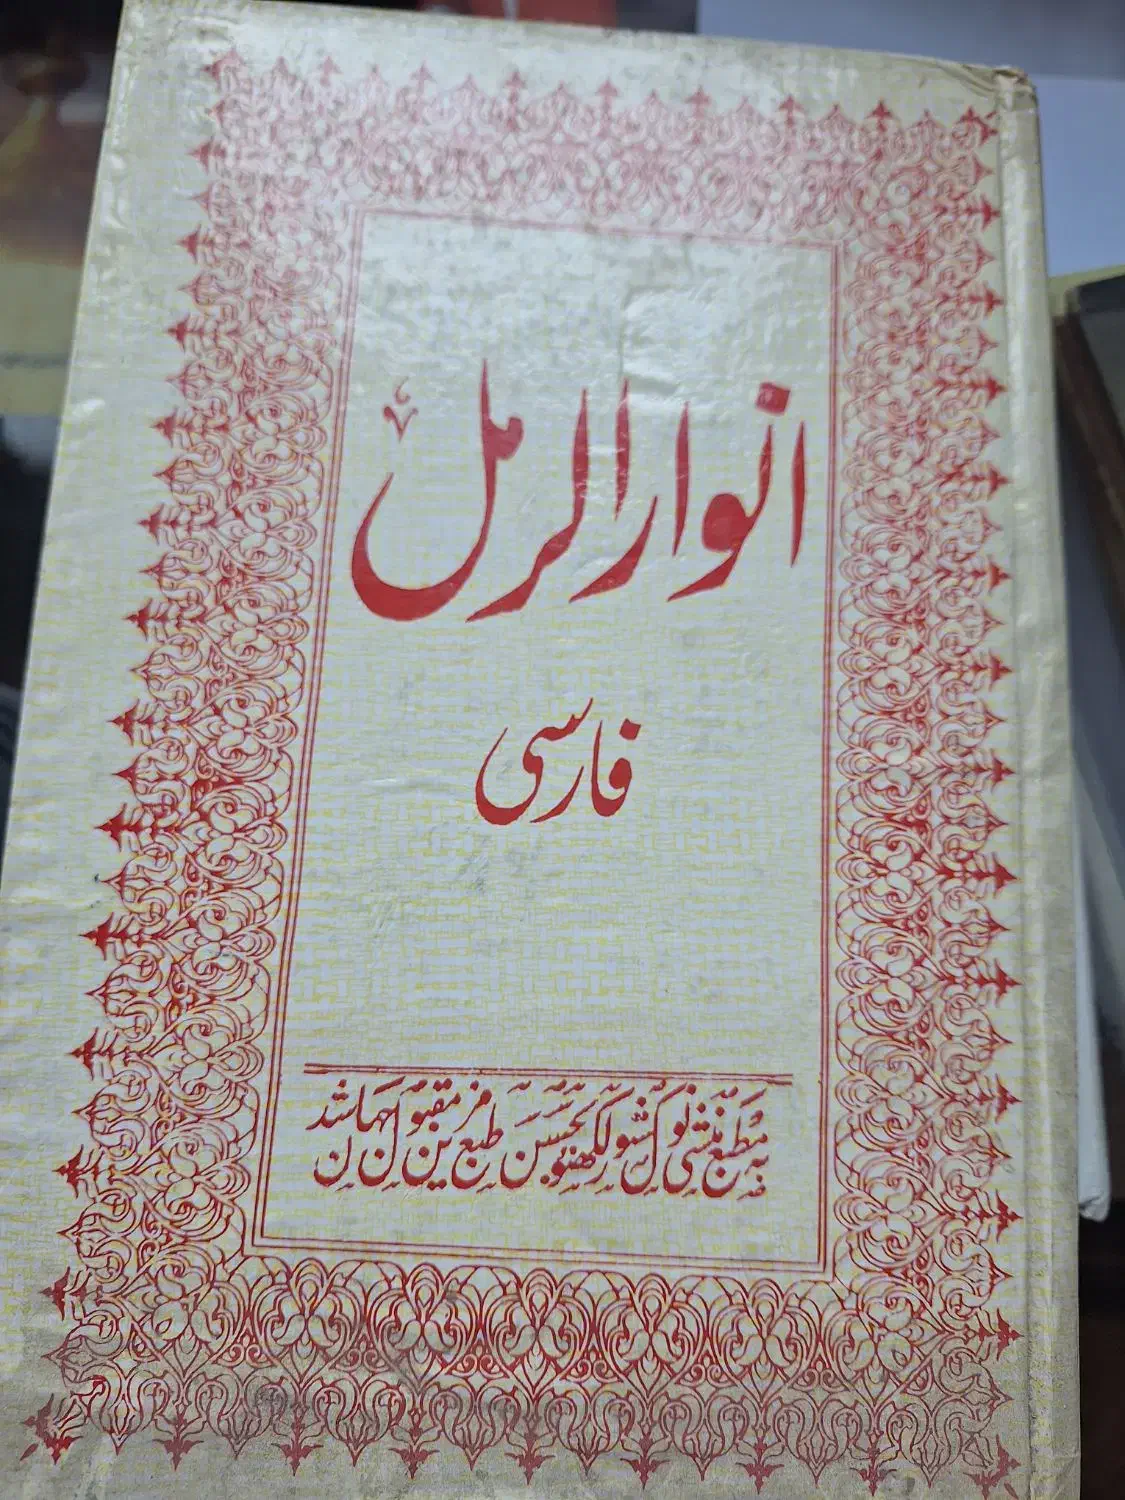 انوار الرمل
فارسی
به مطبع منشی نولکشور لکھنو بحسن طبع مزین مقبول جهان شد